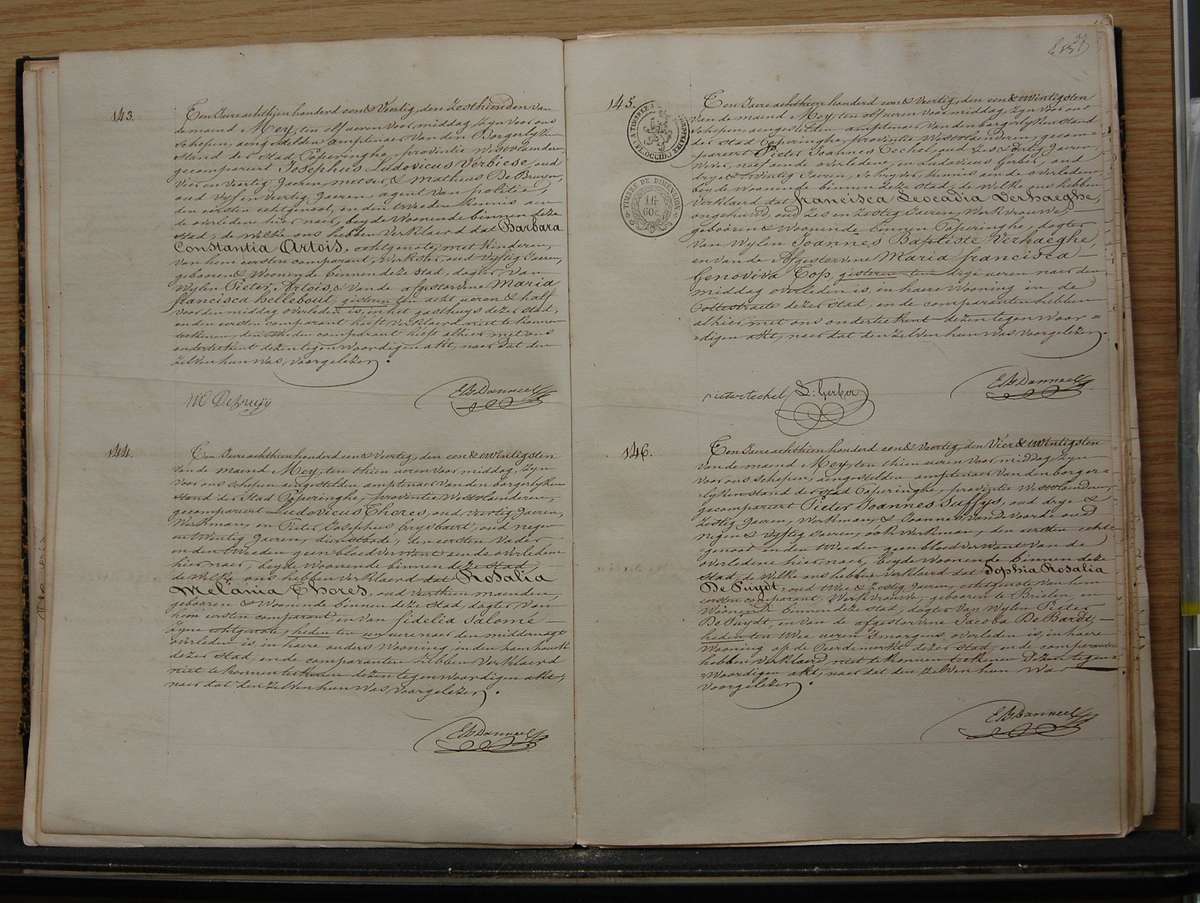 143.
Ten Jaere achthien honderd een & Veertig, den Zesthienden van
de maend Mey, ten elfueren voor middag, Zyn voor ons
Schepen, aengestelden amptenaer van den Borgerlyken
Stand der Stad Poperinghe, provintie Westvlaenderen,
gecompareert Josephus Ludovicus Verbiese, oud
Vier en Veertig Jaeren, metser, & Matheus De Bruyn,
oud Vyf en Veertig Jaeren, agent van politie,
den eersten echtgenoot, en den tweeden kennis aen
de overledene hier naer, beyde Woonende binnen deze
Stad, de Welke ons hebben Verklaerd dat Barbara
Constantia Artois, echtgenote, met Kinderen,
van hem eersten comparant, Werkster, oud Vyftig Jaeren,
geboren & Woonende binnen deze Stad, dogter Van
Wylen Pieter Artois, & Van de afgestorvene Maria
francisca Hellebout, gisteren ten acht ueren & half
Voor den middag overleden is, in het gasthuys dezer Stad,
en den eersten comparant heeft Verklaerd niet te konnen
teekenen, den tweeden comparant heeft alhier met ons
onderteekent dezen tegenwoordigen akt, naer dat den
Zelven hun Was Voorgelezen.
M De bruyn
E B Danneel
144.
Ten Jaere achthien honderd een & Veertig, den een & twintigsten
Van de maand Mey, ten thien ueren voor middag, Zyn
Voor ons Schepen aengestelden amptenaer Van den borgerlyken
Stand der Stad Poperinghe, provintie Westvlaenderen,
gecompareert Ludovicus Thores, oud Veertig Jaeren,
Werkman, en Pieter Josephus Engebaert, oud negen
en twintig Jaeren, dienstbode, den eersten Vader
en den tweeden geen bloedverwant aen de overledene
hier naer, beyde Woonende binnen deze Stad,
de Welke ons hebben Verklaerd dat Rosalia
Melania Thores, oud Verthien maenden,
geboren & Woonende binnen deze Stad, dogter Van
den eersten comparant en van fidelia Salomé
zyne echtgenote, heden ten een uere naer den middernagt
overleden is, in haere ouders Wooning in den
dezer Stad, en de comparanten hebben Verklaerd
niet te konnen teekenen dezen tegenwoordigen akt,
naer dat den Zelven hun Was Voorgelezen.
E B Danneel
145.
Ten Jaere achthien honderd een & Veertig, den een & twintigsten
van de maend Mey, ten elf ueren voor middag zyn voor ons
Schepen, aengestelden amptenaer Van den borgerlyken Stand
der Stad Poperinghe, provintie Westvlaenderen, gecom-
pareert Pieter Joannes Techel, oud Zes & dertig Jaeren,
Wever, neef aen de overledene, en Ludovicus Gerber, oud
drye & twintig Jaeren, Schryver, kennis aen de overledene
beyde Woonende binnen deze Stad, de Welke ons hebben
Verklaerd dat francisca Leocadia Verhaeghe,
ongehuwd, oud Zes en Zestig Jaeren, Werkvrouwe,
geboren & Woonende binnen Poperinghe, dogter
Van Wylen Joannes Baptiste Verhaeghe,
en van de afgestorvene Maria francisca
Genoviva Top, gisteren ten drye ueren naer den
middag overleden is, in haere Wooning in de
Pottestraete dezer Stad, en de comparanten hebben
alhier met ons onderteekent dezen tegenwoor-
digen akt, naer dat den Zelven hun Was Voorgelezen.
pieter techel
L: Gerber
E B Danneel
TIMBRE DE DIMENSION
146.
Ten Jaere achthien honderd een & Veertig, den Vier & twintigsten
van de maand Mey, ten thien ueren voor middag Zyn
voor ons Schepen, aengestelden amptenaer Van den borger-
lyken stand der Stad Poperinghe, provintie Westvlaenderen,
gecompareert Pieter Joannes Saffys, oud drye &
Zestig Jaeren, Werkman, & Joannes Vande Voorde, oud
negen & Vyftig Jaeren, ook Werkman, den eersten echt-
genoot en den tweeden geen bloedverwant van de
overledene hier naer, beyde Woonende binnen deze
Stad, de Welke ons hebben Verklaerd dat Sophia Rosalia
De Puydt, oud Twee & Zestig Jaeren, echtgenote van hem
eersten comparant, Werkvrouwe, geboren te Brielen, en
Woonende binnen deze Stad, dogter Van Wylen Pieter
De Puydt, en van de afgestorvene Jacoba De Bardt,
heden ten twee ueren s'morgens overleden is, in haere
Wooning op de Peerdemarkt dezer Stad, en de comparanten
hebben Verklaerd niet te konnen teekenen dezen tegen-
Woordigen akt, naer dat den Zelven hun Was
Voorgelezen.
E B Danneel